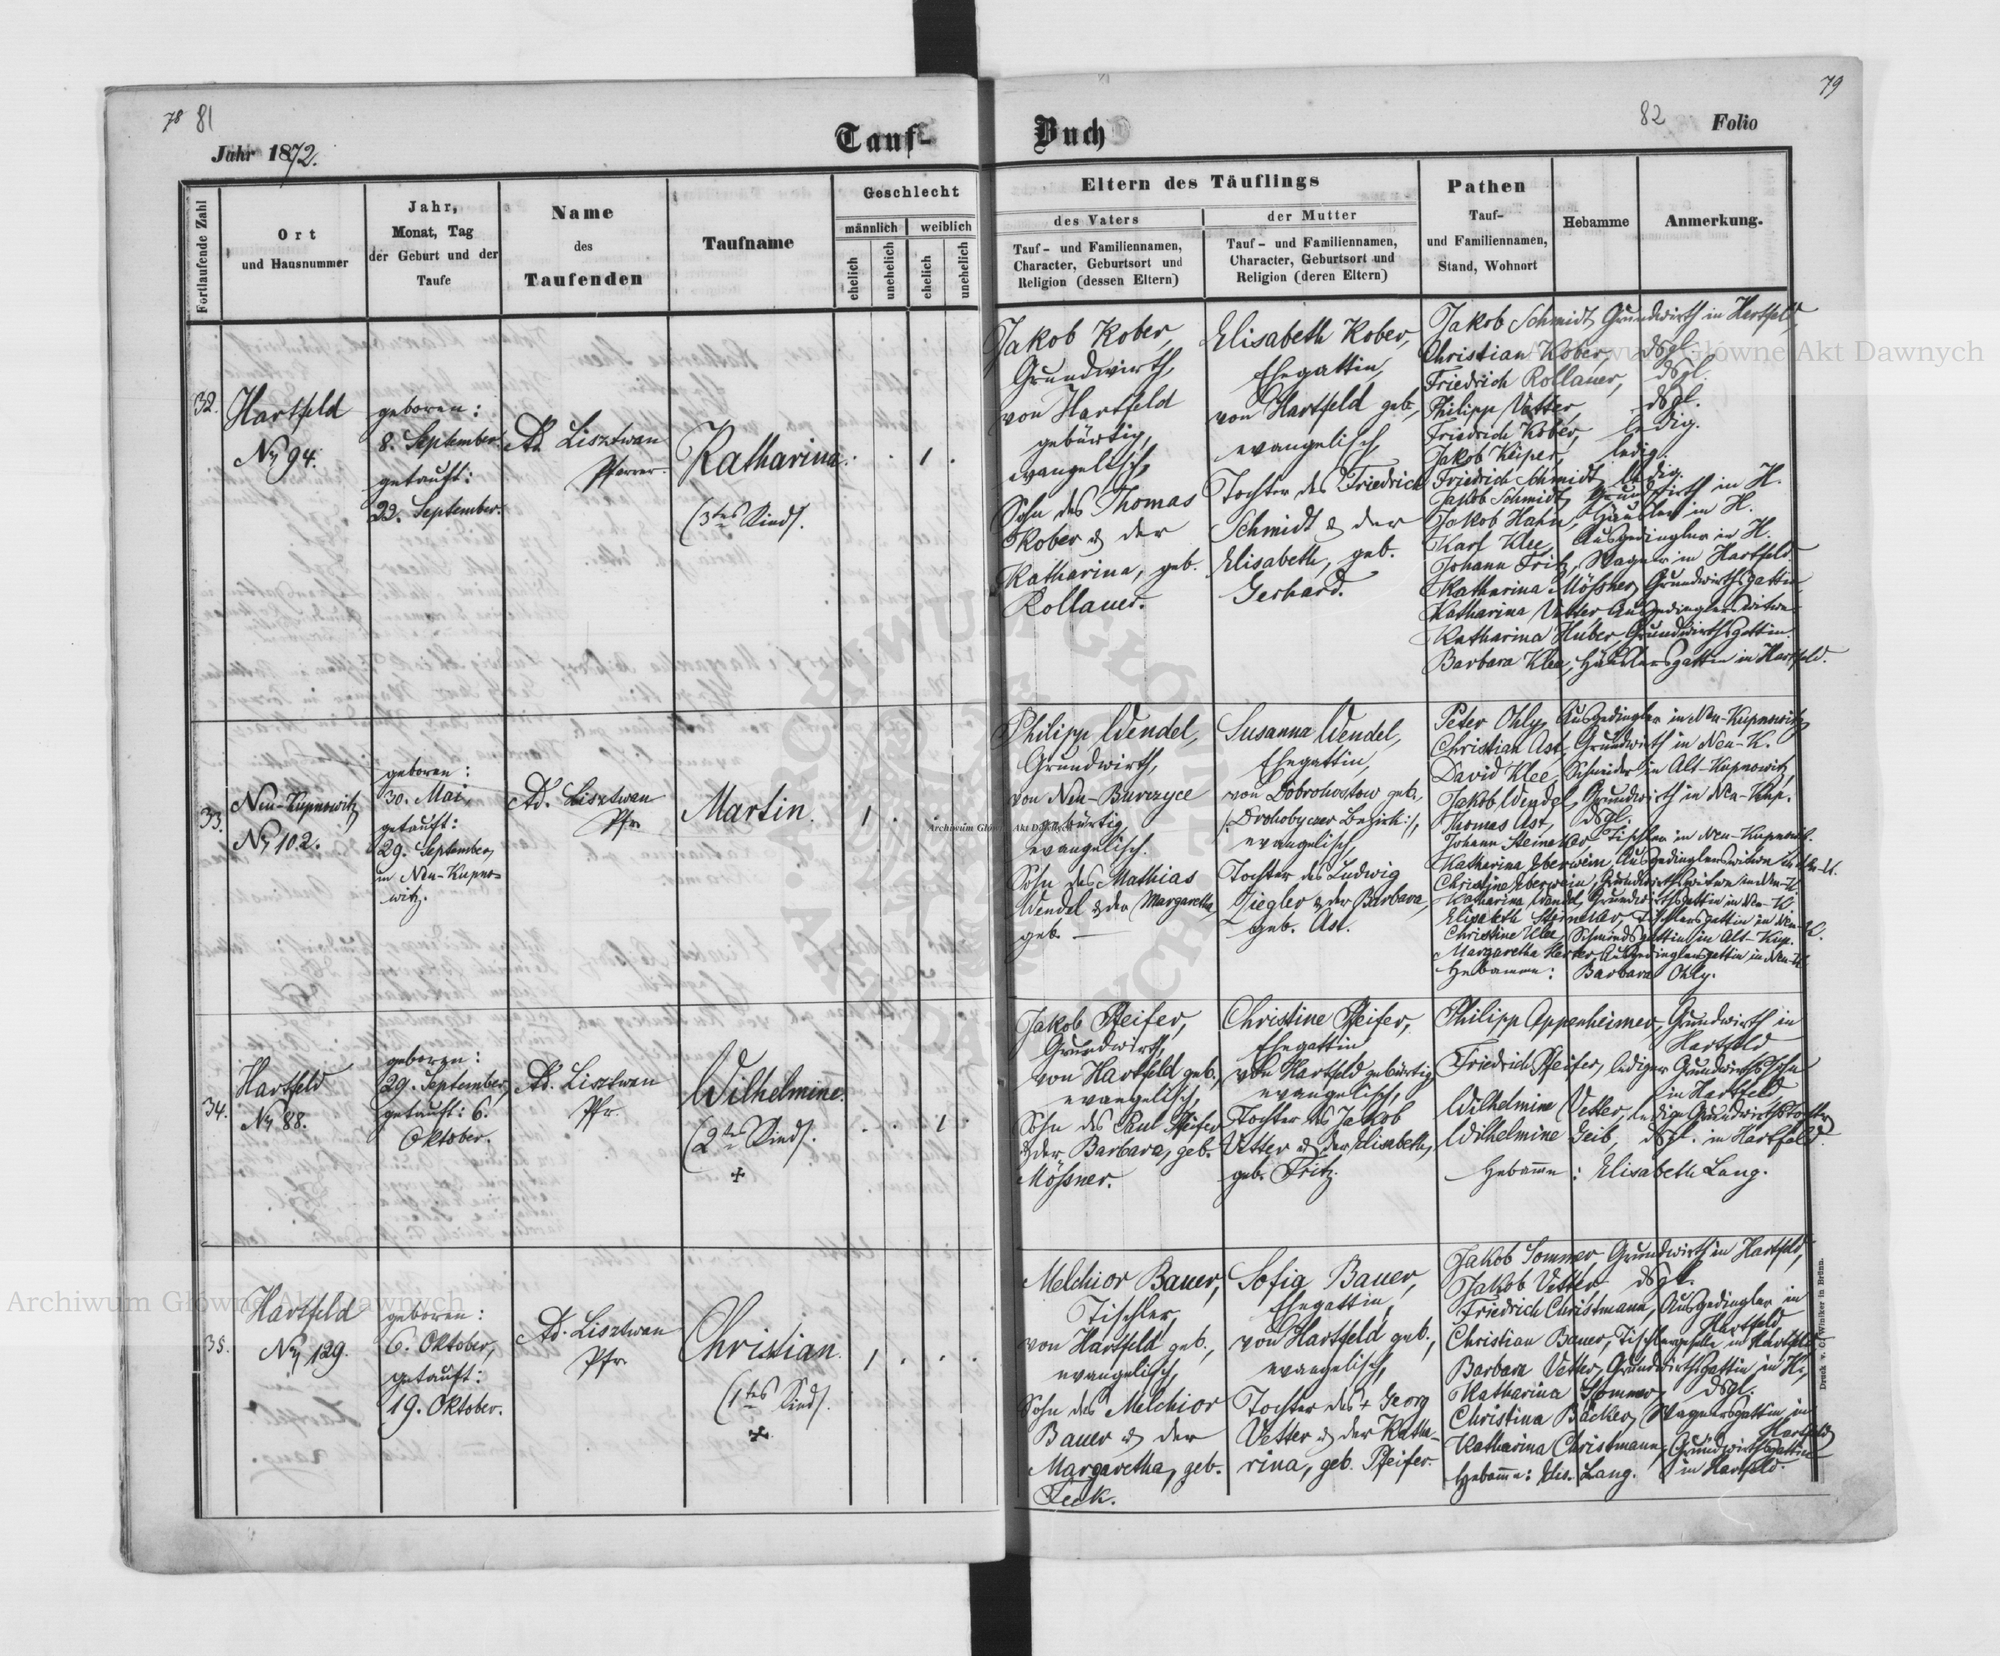 78 81
Jahr 1872.
Tauf-
Buch
82
Folio
79
Fortlaufende Zahl
Ort
und Hausnummer
Jahr,
Monat, Tag
der Geburt und der
Taufe
Name
des
Taufenden
Taufname
Geschlecht
männlich
weiblich
ehelich
unehelich
ehelich
unehelich
Eltern des Täuflings
des Vaters
Tauf- und Familiennamen,
Character, Geburtsort und
Religion (dessen Eltern)
der Mutter
Tauf- und Familiennamen,
Character, Geburtsort und
Religion (deren Eltern)
Pathen
Tauf-
und Familiennamen,
Stand, Wohnort
Hebamme
Anmerkung.
32.
Hartfeld
No 94.
geboren:
8. September
getauft:
22. September.
Ad. Lisztwan
Pfarrer.
Katharina
(3tes Kind).
1
Jakob Kober,
Grundwirth,
von Hartfeld
gebürtig,
evangelisch,
Sohn des Thomas
Kober & der
Katharina, geb.
Kollauer.
Elisabeth Kober,
Ehegattin,
von Hartfeld geb.,
evangelisch,
Tochter des Friedrich
Schmidt & der
Elisabeth, geb.
Gerhard.
Jakob Schmidt, Grundwirth in Hartfeld,
Christian Kober, dsgl.
Friedrich Kollauer, dsgl.
Philipp Vetter, dsgl.
Friedrich Kober, ledig.
Jakob Keiper, ledig.
Friedrich Schmidt, ledig.
Jakob Schmidt, Grundwirth in H.
Jakob Hahn, Häusler in H.
Karl Klee, Ausgedingler in H.
Johann Fritz, Wagner in Hartfeld
Katharina Mößner, Grundwirthsgattin
Katharina Vetter Ausgedinglerswitwe
Katharina Huber Grundwirthsgattin.
Barbara Klee, Häuslersgattin in Hartfeld.
33.
Neu-Kupnowitz
No 102.
geboren:
30. Mai,
getauft:
29. September,
in Neu-Kupno-
witz.
Ad. Lisztwan
Pfr.
Martin.
1
Philipp Wendel,
Grundwirth,
von Neu-Burczyce
gebürtig
evangelisch.
Sohn des Mathias
Wendel & der Margaretha,
geb. —
Susanna Wendel,
Ehegattin,
von Dobrohostow geb.,
/: Drohobyczer Bezirk :/,
evangelisch,
Tochter des Ludwig
Ziegler & der Barbara,
geb. Ast.
Peter Ohly, Ausgedingler in Neu-Kupnowitz,
Christian Ast, Grundwirth in Neu-K.
David Klee, Schneider in Alt-Kupnowitz,
Jakob Wendel, Grundwirth in Neu-Kup.
Thomas Ast, dsgl.
Johann Tischler in Neu-Kupnowitz.
Katharina Eberwein, Ausgedinglerswitwe in
Christine Eberwein, Grundwirthswitwe in Neu-K.
Katharina Wendel, Grundwirthsgattin in Neu-K.
Elisabeth Tischlersgattin in Neu-K.
Christine Klee, in Alt-Kup.
Margaretha Ausgedinglersgattin in Neu-K.
Hebamme: Barbara Ohly.
34.
Hartfeld
No 88.
geboren:
29. September,
getauft: 6.
Oktober.
Ad. Lisztwan
Pfr.
Wilhelmine.
(2tes Kind).
1
Jakob Pfeifer,
Grundwirth,
von Hartfeld geb.,
evangelisch,
Sohn des Paul Pfeifer
& der Barbara, geb.
Mößner.
Christine Pfeifer,
Ehegattin
von Hartfeld gebürtig,
evangelisch,
Tochter des Jakob
Vetter & der Elisabeth,
geb. Fritz.
Philipp Appenheimer, Grundwirth in
Hartfeld
Friedrich Pfeifer, lediger Grundwirthssohn
in Hartfeld
Wilhelmine Vetter, ledige Grundwirthstochter
Wilhelmine Geib, dsgl. in Hartfeld.
Hebamme: Elisabeth Lang.
35.
Hartfeld
No 129.
geboren:
6. Oktober,
getauft:
19. Oktober.
Ad. Lisztwan
Pfr.
Christian.
(1tes Kind).
1
Melchior Bauer,
Tischler,
von Hartfeld geb.,
evangelisch,
Sohn des Melchior
Bauer & der
Margaretha, geb.
Feck.
Sofia Bauer,
Ehegattin,
von Hartfeld geb.,
evangelisch,
Tochter des + Georg
Vetter & der Katha-
rina, geb. Pfeifer.
Jakob Sommer Grundwirth in Hartfeld,
Jakob Vetter dsgl.
Friedrich Christmann, Ausgedingler in
Hartfeld
Christian Bauer, Tischlergeselle in Hartfeld
Barbara Vetter, Grundwirthsgattin in H.,
Katharina Sommer, dsgl.
Christina Bäcker, Wagnersgattin in
Hartfeld
Katharina Christmann, Grundwirthsgattin
in Hartfeld.
Hebamme: Elis. Lang.
Druck v. C. Winiker in Brünn.
Archiwum Główne Akt Dawnych
Archiwum Główne Akt Dawnych
Archiwum Główne Akt Dawnych